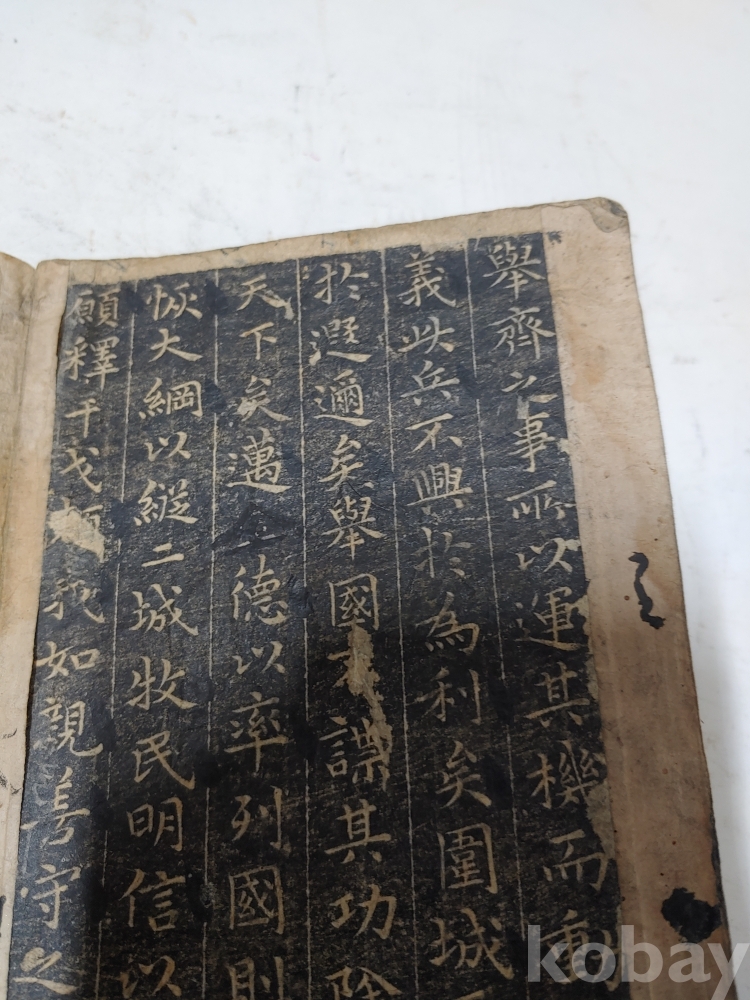 舉齊之事所以運其機而動
義此兵不興於為利矣圍城
於遐邇矣舉國不謀其功除
天下矣邁全德以率列國則
恢大綱以縱二城牧民明信以
願釋干戈賴我如親善守之
kobay